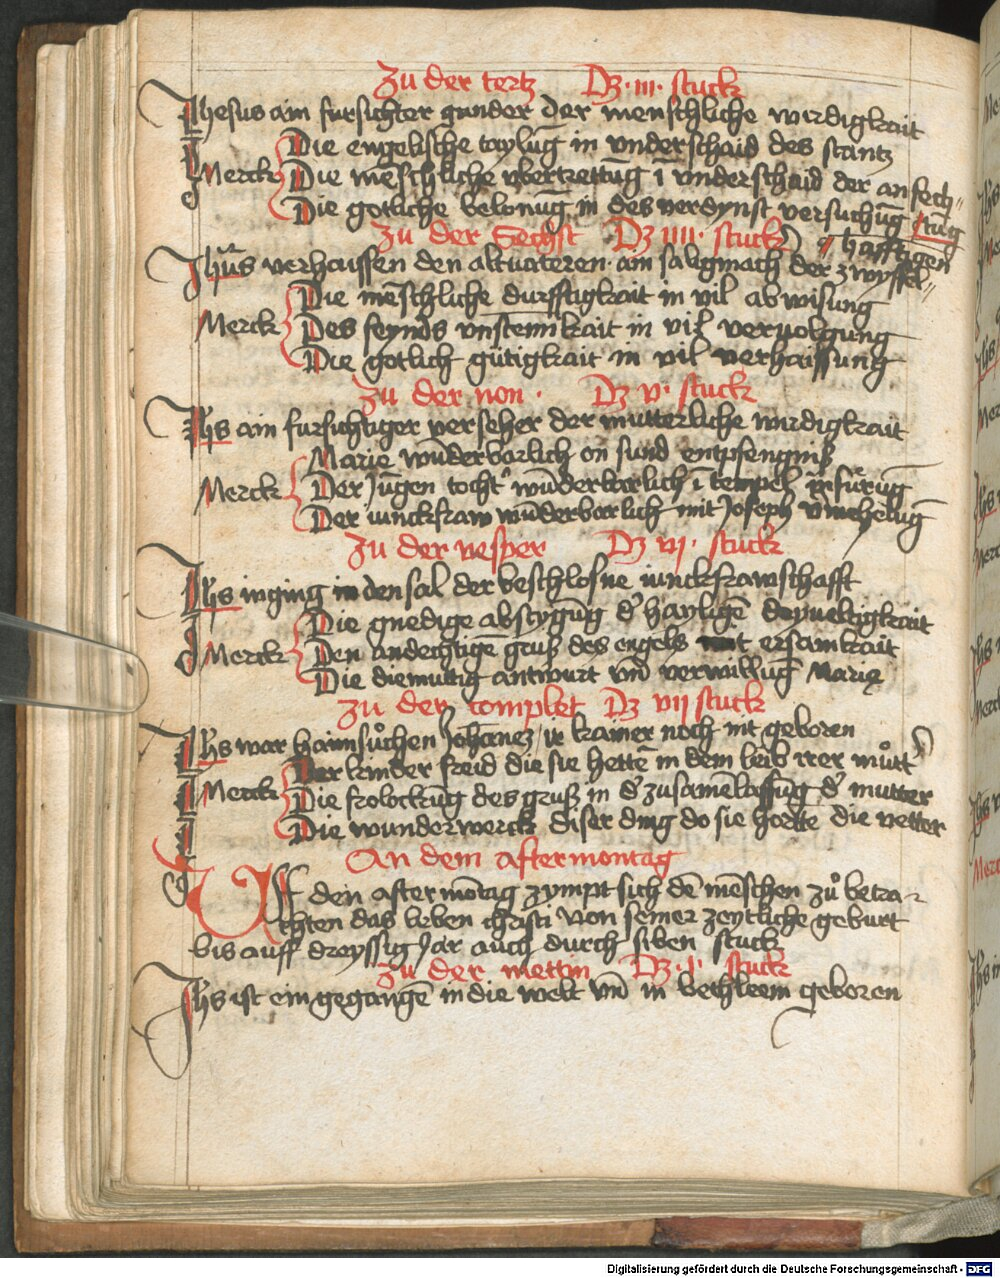 Zu der tertz Dz ·iii· stuck
Jhesus ain fursichter gunder der menschliche wirdigkait
Die engelische taylūg in underschaid des stantz
Merck Die mēschliche ubertrettūg ī underschaid der anfech„
Die gotliche belonūg in des verdynst versuchūg tūg
Zu der Sechst Dz iiii· stuck hafftigen
Jhūs verhaissen den altuäteren· am saligmach der zwyffel„
Die mēschliche durfftigkait in vil abwisung
Merck Des feynds unstemikait in vil vervolgung
Die gotlich gütigkait in vil verhaissung
Zu der non · Dz v· stuck
Jhs ain fursichtiger verseher der mutterliche wirdigkait
Marie wūderbarlich on sund entpfengniß
Merck Der Jūgen tocht' wūderbarlich ī tempel
Der iunckfraw wūderbarlich mit Joseph vmehelūg
Zu der vesper Dz vj· stuck
Jhs inging in den sal der beschlosne iunckfrawschafft
Die gnedige abstygūg d' hayligē
Merck Den andechtigē gruß des engels ersamkait
Die diemuttig antwurt vnd verwillūg Marie
Zu der complet Dz vii stuck
Jhs war haimsůchen Johānez ir kamer noch nit geboren
Der kinder freid die sie hettē in dem leib irer můtt'
Merck Die frolockūg des gruß in d' zusamēlaffūg d' mutter
Die wunderwerck diser ding do sie hortte die vetter
An dem aftermontag
Uff den aftermōtag zympt sich dē mēschen zů betra-
chten das leben christi von seiner zeytliche geburt
bis auff dreyssig Jar auch durch siben stuck
Zu der mettin Dz ·i· stuck
Jhs ist ein gegangē in die welt vnd in bethleem geboren
Digitalisierung gefördert durch die Deutsche Forschungsgemeinschaft - DFG